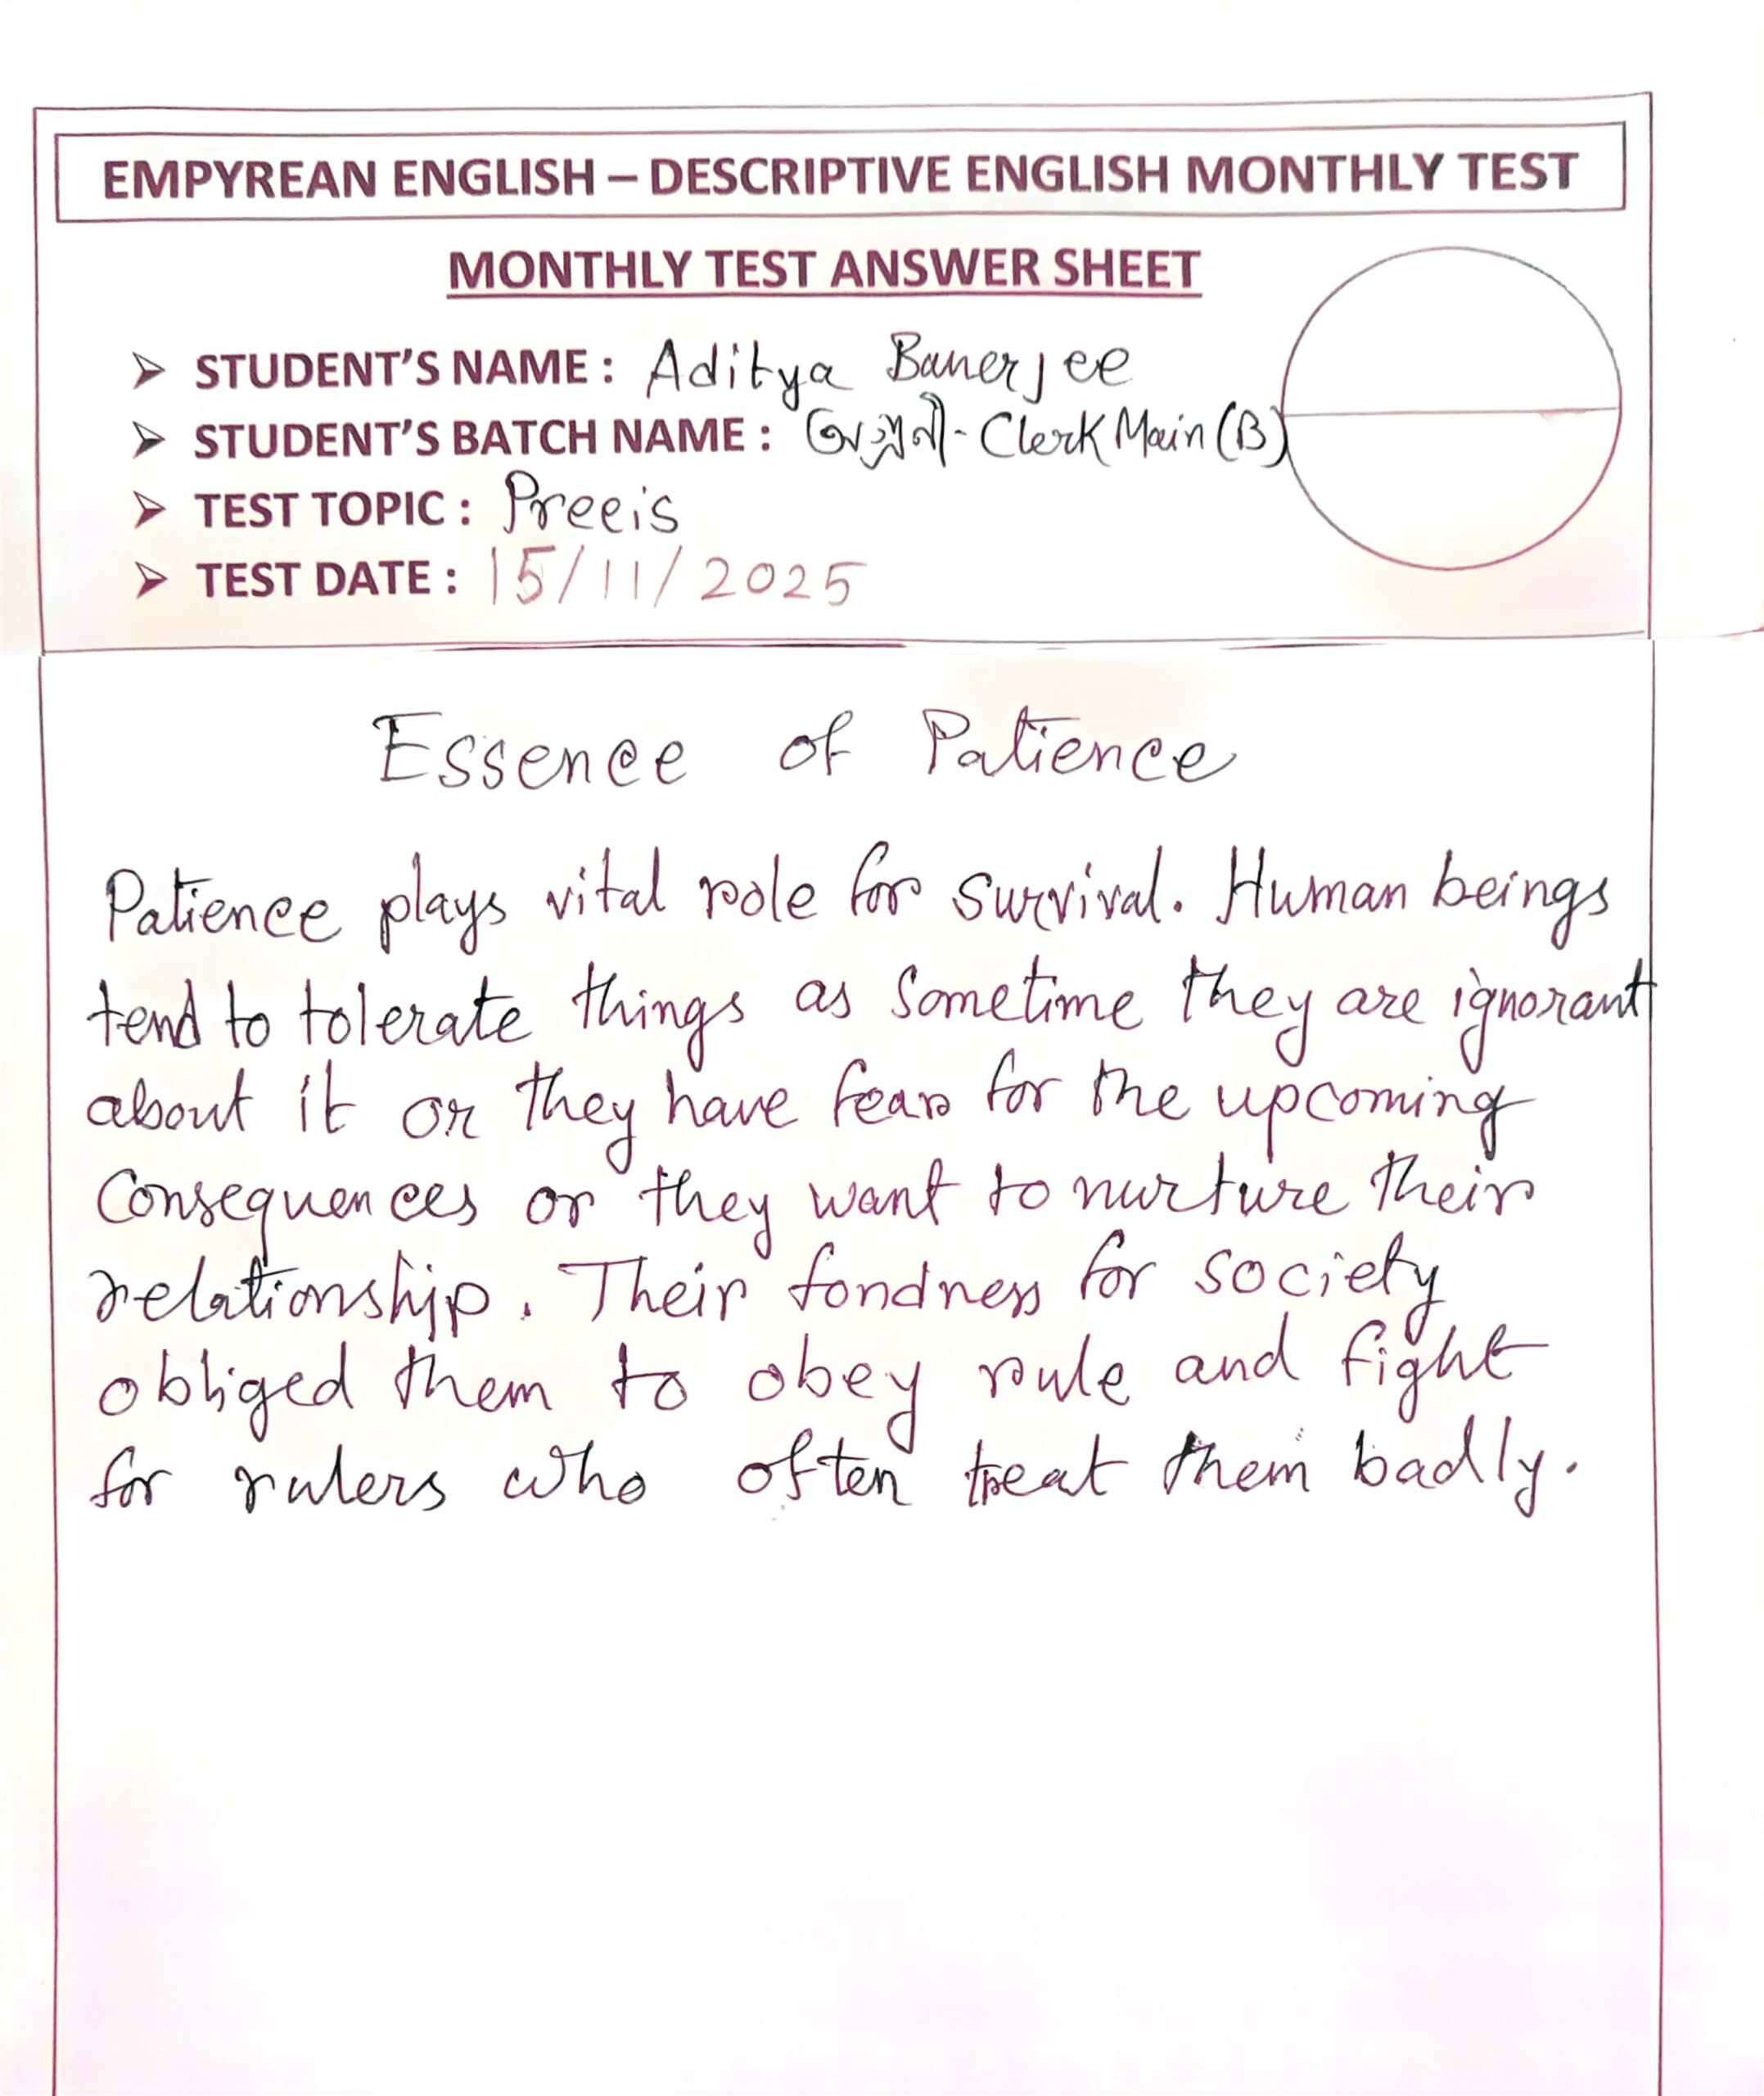 EMPYREAN ENGLISH – DESCRIPTIVE ENGLISH MONTHLY TEST
MONTHLY TEST ANSWER SHEET
➢ STUDENT'S NAME : Aditya Banerjee
➢ STUDENT'S BATCH NAME : - Clerk Main (B)
➢ TEST TOPIC : Precis
➢ TEST DATE : 15/11/2025
Essence of Patience
Patience plays vital role for survival. Human beings
tend to tolerate things as sometime they are ignorant
about it or they have fear for the upcoming
Consequences or they want to nurture their
relationship. Their fondness for society
obliged them to obey rule and fight
for rulers who often treat them badly.